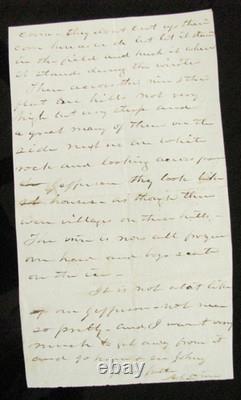 corn - they dont cut up their
corn here as we do but let it stand
in the field and husk it where
it stands during the winter
Then across the river the
flat are hills not very
high but very steep and
a great many of them on the
side next us are white
rock and looking across from
Jefferson they look like
houses as though there
were villages on these hills -
The river is now all frozen
over hard and boys skate
on the ice -
It is not a bit like
our Jefferson - not near
so pretty - and I want very
much to get away from it
and go home to see Johny
© ebay.com